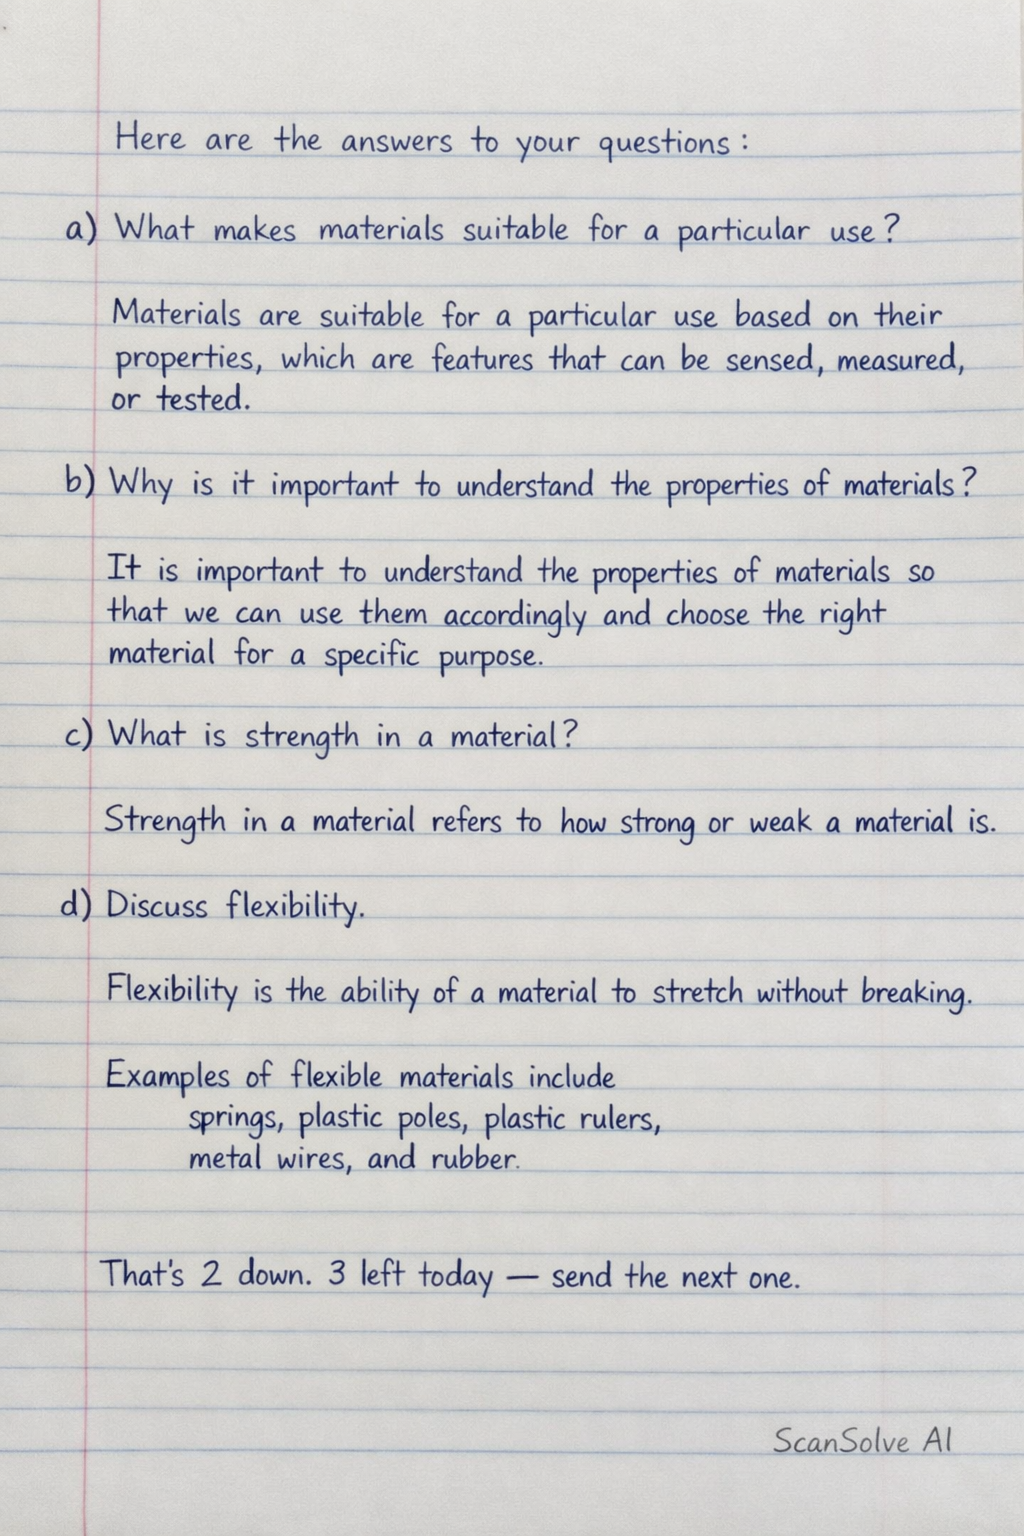 Here are the answers to your questions:
a) What makes materials suitable for a particular use?
Materials are suitable for a particular use based on their
properties, which are features that can be sensed, measured,
or tested.
b) Why is it important to understand the properties of materials?
It is important to understand the properties of materials so
that we can use them accordingly and choose the right
material for a specific purpose.
c) What is strength in a material?
Strength in a material refers to how strong or weak a material is.
d) Discuss flexibility.
Flexibility is the ability of a material to stretch without breaking.
Examples of flexible materials include
springs, plastic poles, plastic rulers,
metal wires, and rubber.
That's 2 down. 3 left today — send the next one.
ScanSolve AI